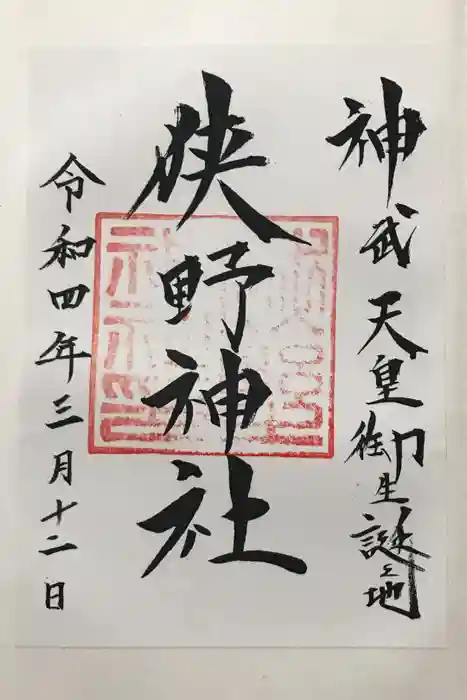 神武天皇御生誕之地
狹野神社
令和四年三月十二日